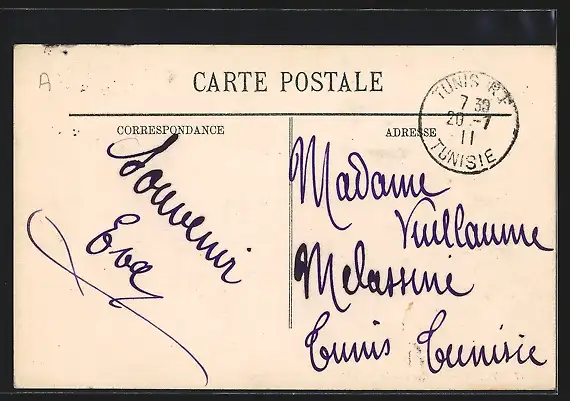 A
CARTE POSTALE
TUNIS R.P
7 30
20 -7
11
TUNISIE
CORRESPONDANCE
ADRESSE
Souvenir
Eva
Madame
Vuillaume
Melassine
Tunis Tunisie